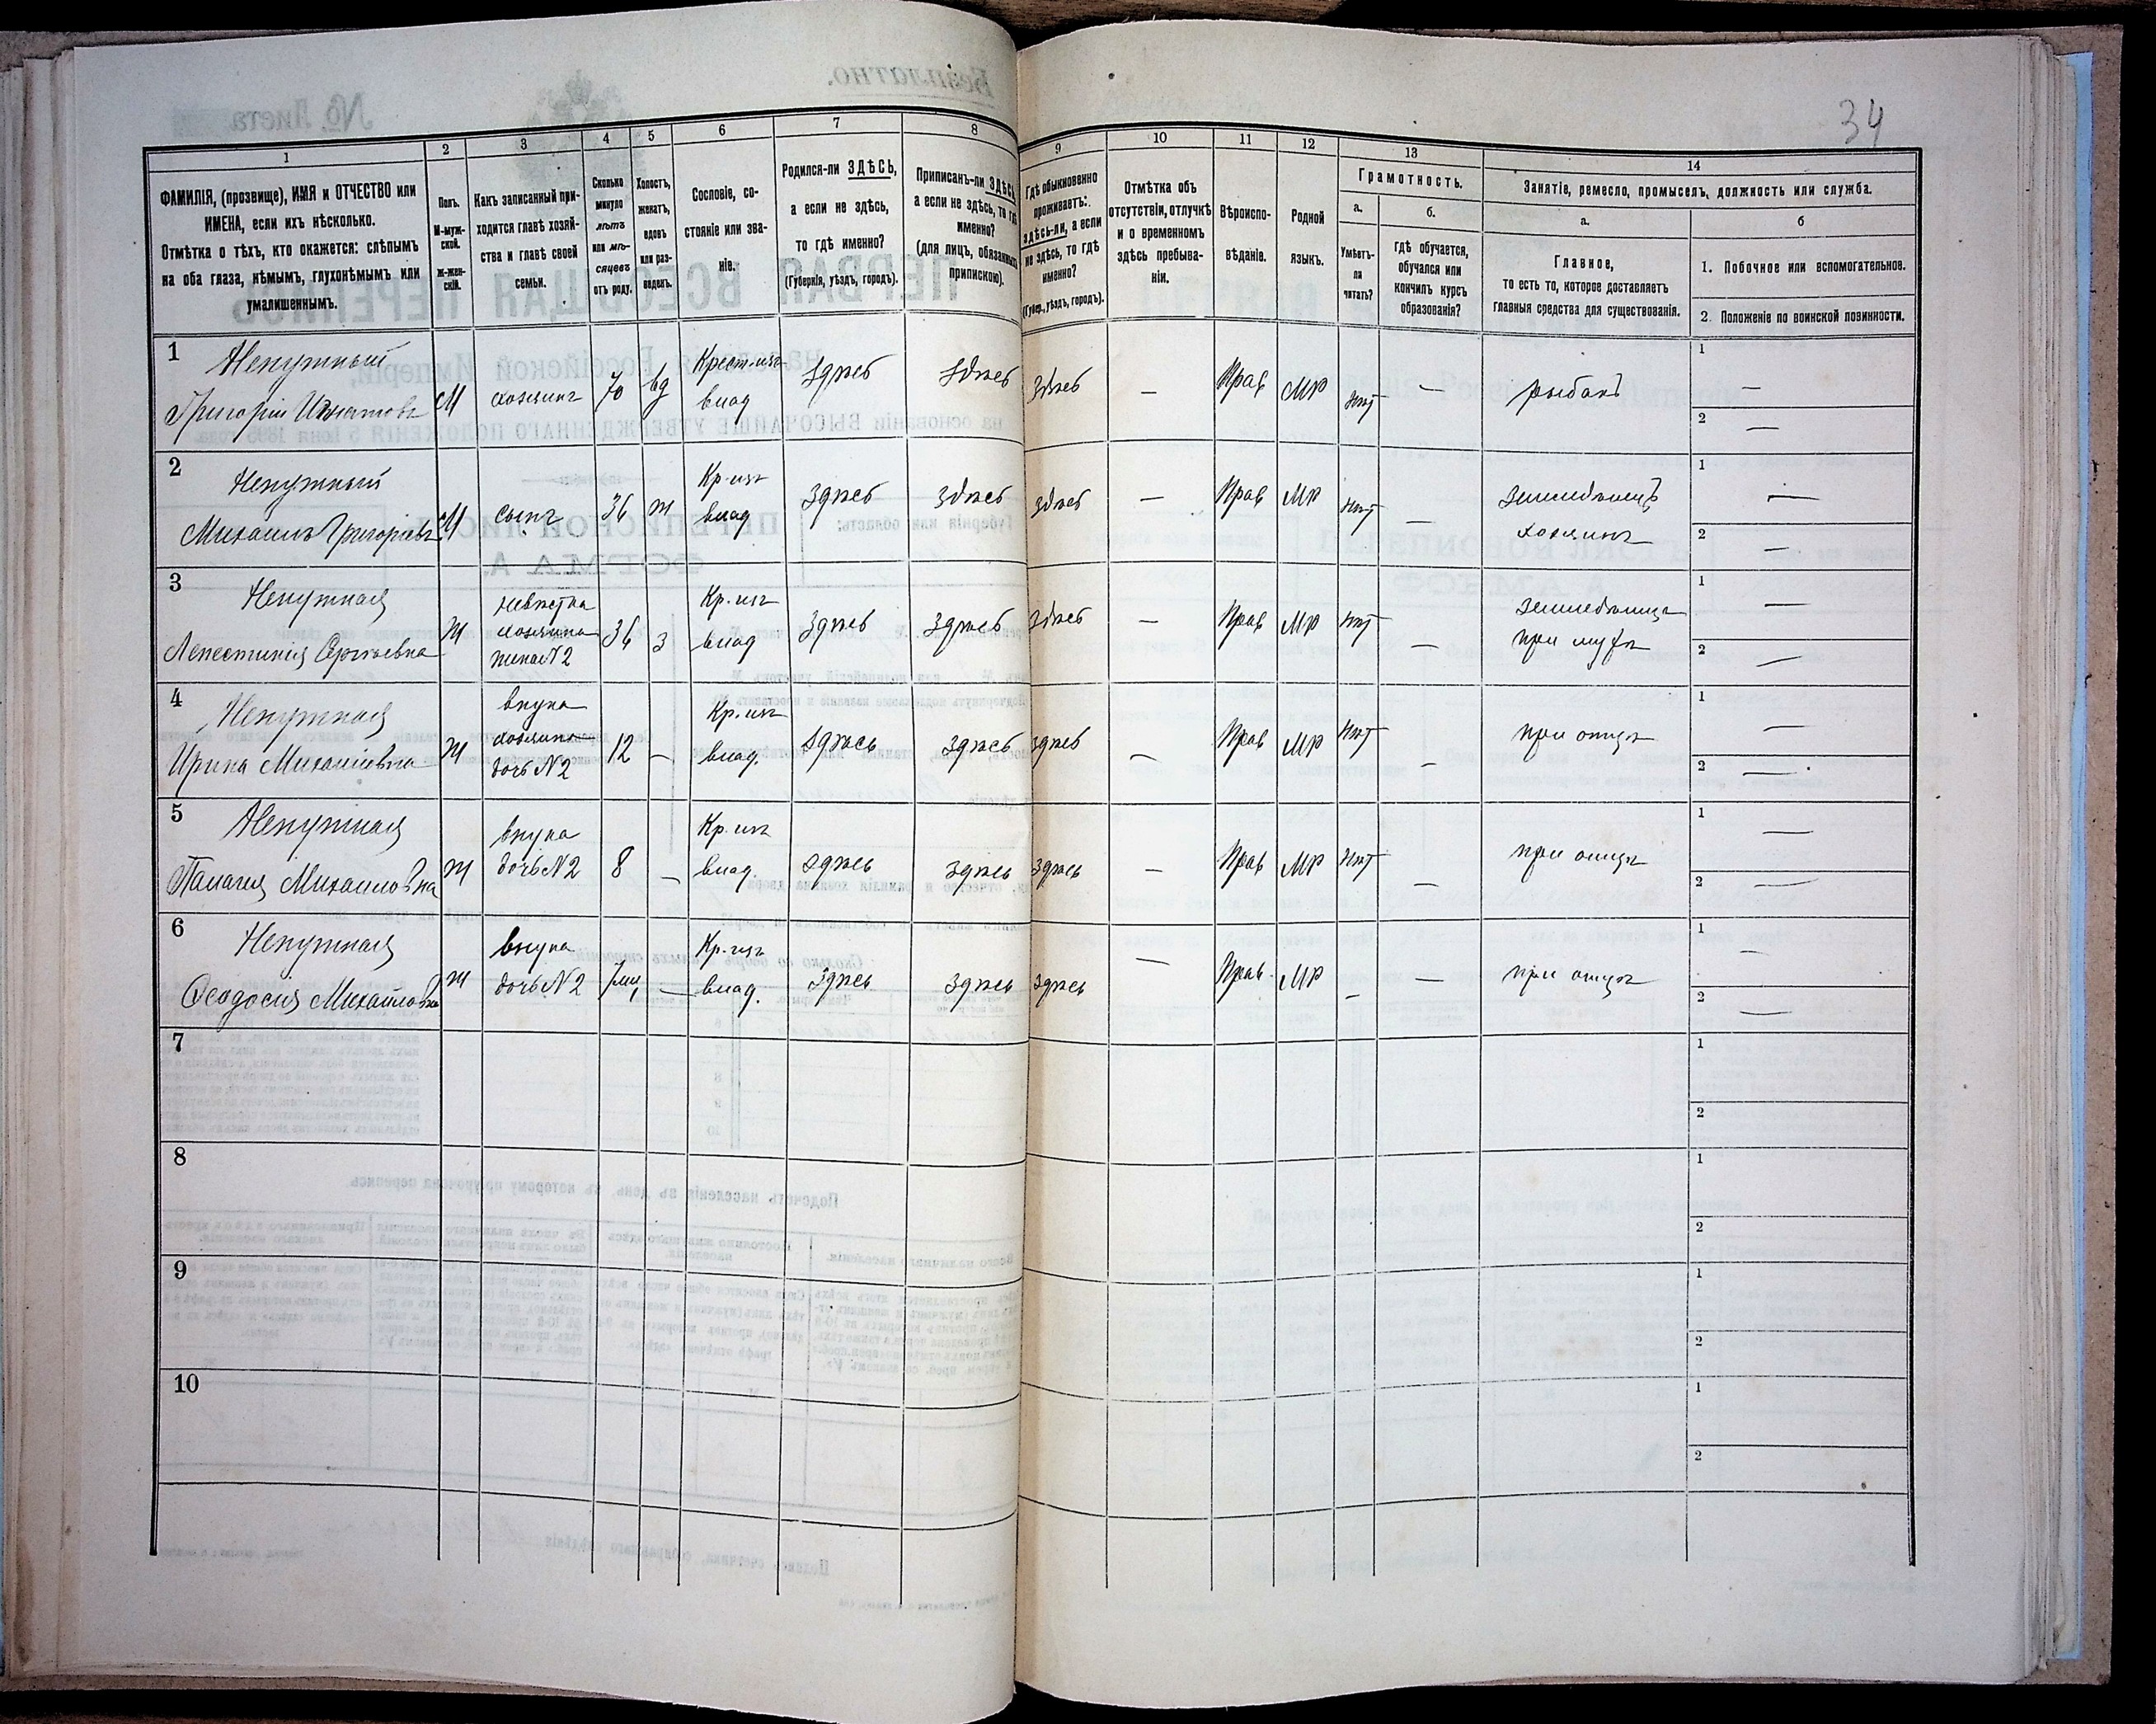 34
1
2
3
4
5
6
7
8
9
10
11
12
13
14
ФАМИЛІЯ, (прозвище), ИМЯ и ОТЧЕСТВО или
ИМЕНА, если ихъ нѣсколько.
Отмѣтка о тѣхъ, кто окажется: слѣпымъ
на оба глаза, нѣмымъ, глухонѣмымъ или
умалишеннымъ.
Полъ.
М-муж-
ской.
Ж-жен-
скій.
Какъ записанный при-
ходится главѣ хозяй-
ства и главѣ своей
семьи.
Сколько
минуло
лѣтъ
или мѣ-
сяцевъ
отъ роду.
Холостъ,
женатъ,
вдовъ
или раз-
веденъ.
Сословіе, со-
стояніе или зва-
ніе.
Родился-ли ЗДѢСЬ,
а если не здѣсь,
то гдѣ именно?
(Губернія, уѣздъ, городъ).
Приписанъ-ли ЗДѢСЬ,
а если не здѣсь, то гдѣ
именно?
(для лицъ, обязанныхъ
припискою).
Гдѣ обыкновенно
проживаетъ:
здѣсь-ли, а если
не здѣсь, то гдѣ
именно?
(Губер., уѣздъ, городъ).
Отмѣтка объ
отсутствіи, отлучкѣ
и о временномъ
здѣсь пребыва-
ніи.
Вѣроиспо-
вѣданіе.
Родной
языкъ.
Грамотность.
а.
Умѣетъ-
ли
читать?
б.
гдѣ обучается,
обучался или
кончилъ курсъ
образованія?
Занятіе, ремесло, промыселъ, должность или служба.
а.
Главное,
то есть то, которое доставляетъ
главныя средства для существованія.
б
1. Побочное или вспомогательное.
2. Положеніе по воинской повинности.
1 Ненужный
Григорій Игнатовъ
М
хозяинъ
70
вд
Крест. изъ
влад
здѣсь
здѣсь
здѣсь
—
Прав
МР
нѣт
—
рыбакъ
1 —
2 —
2 Ненужный
Михаилъ Григорьевъ
М
сынъ
36
ж
Кр. изъ
влад
здѣсь
здѣсь
здѣсь
—
Прав
МР
нѣт
—
земледѣлецъ
хозяинъ
1 —
2 —
3 Ненужная
Ж
невѣстка
хозяина
жена N2
36
З
Кр. изъ
влад
здѣсь
здѣсь
здѣсь
—
Прав
МР
нѣт
—
при мужѣ
1 —
2 —
4 Ненужная
Ирина Михайловна
Ж
внука
хозяина
дочь N2
12
—
Кр. изъ
влад.
здѣсь
здѣсь
здѣсь
—
Прав
МР
нѣт
—
при отцѣ
1 —
2 —
5 Ненужная
Палагея Михайловна
Ж
внука
дочь N2
8
—
Кр. изъ
влад.
здѣсь
здѣсь
здѣсь
—
Прав
МР
нѣт
—
при отцѣ
1 —
2 —
6 Ненужная
Ѳеодосія Михайловна
Ж
внука
дочь N2
—
Кр. изъ
влад.
здѣсь
здѣсь
здѣсь
—
Прав.
МР
—
—
при отцѣ
1 —
2 —
7
1
2
8
1
2
9
1
2
10
1
2